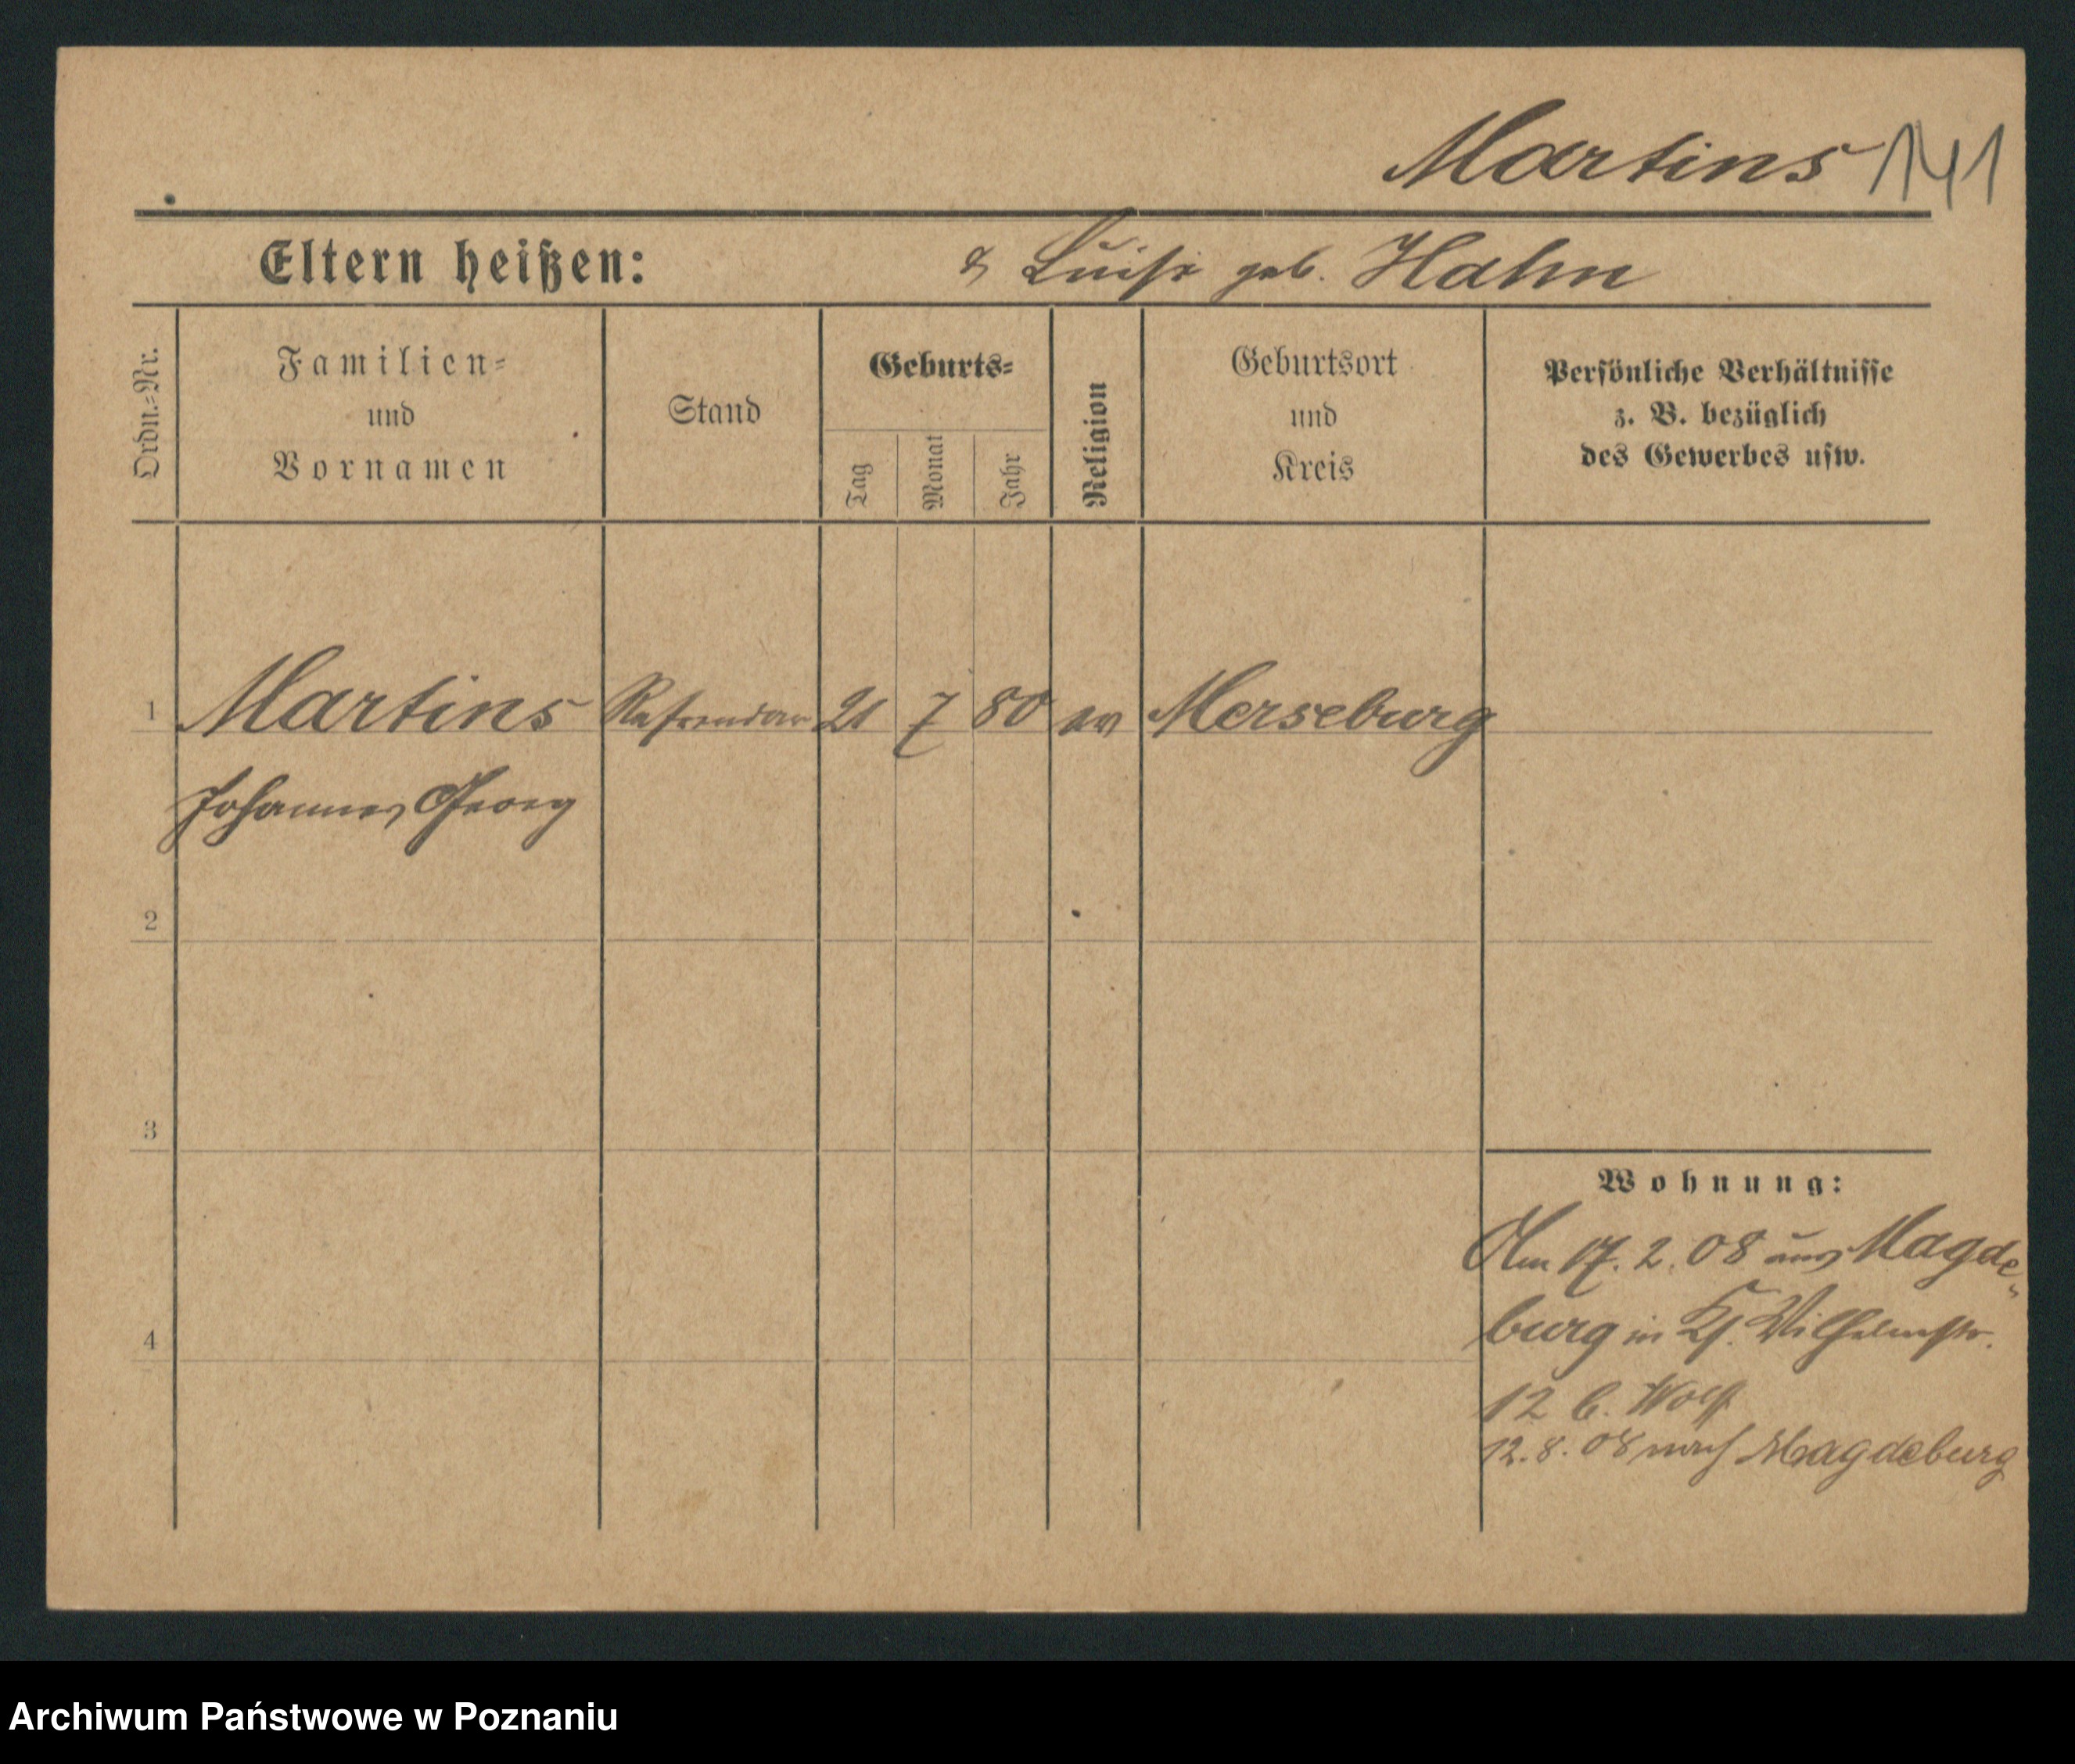 Martins 141
Eltern heißen: & Luise geb. Hahn
Ordn.-Nr.
Familien-
und
Vornamen
Stand
Geburts-
Tag
Monat
Jahr
Religion
Geburtsort
und
Kreis
Persönliche Verhältnisse
z. B. bezüglich
des Gewerbes usw.
1 Martins Referendar 21 7 80 ev Merseburg
Johannes Georg
2
3
Wohnung:
Am 17. 2. 08 aus Magde-
burg in Wilhelmstr.
4
12 b. Wolf
12. 8. 08 nach Magdeburg
Archiwum Państwowe w Poznaniu